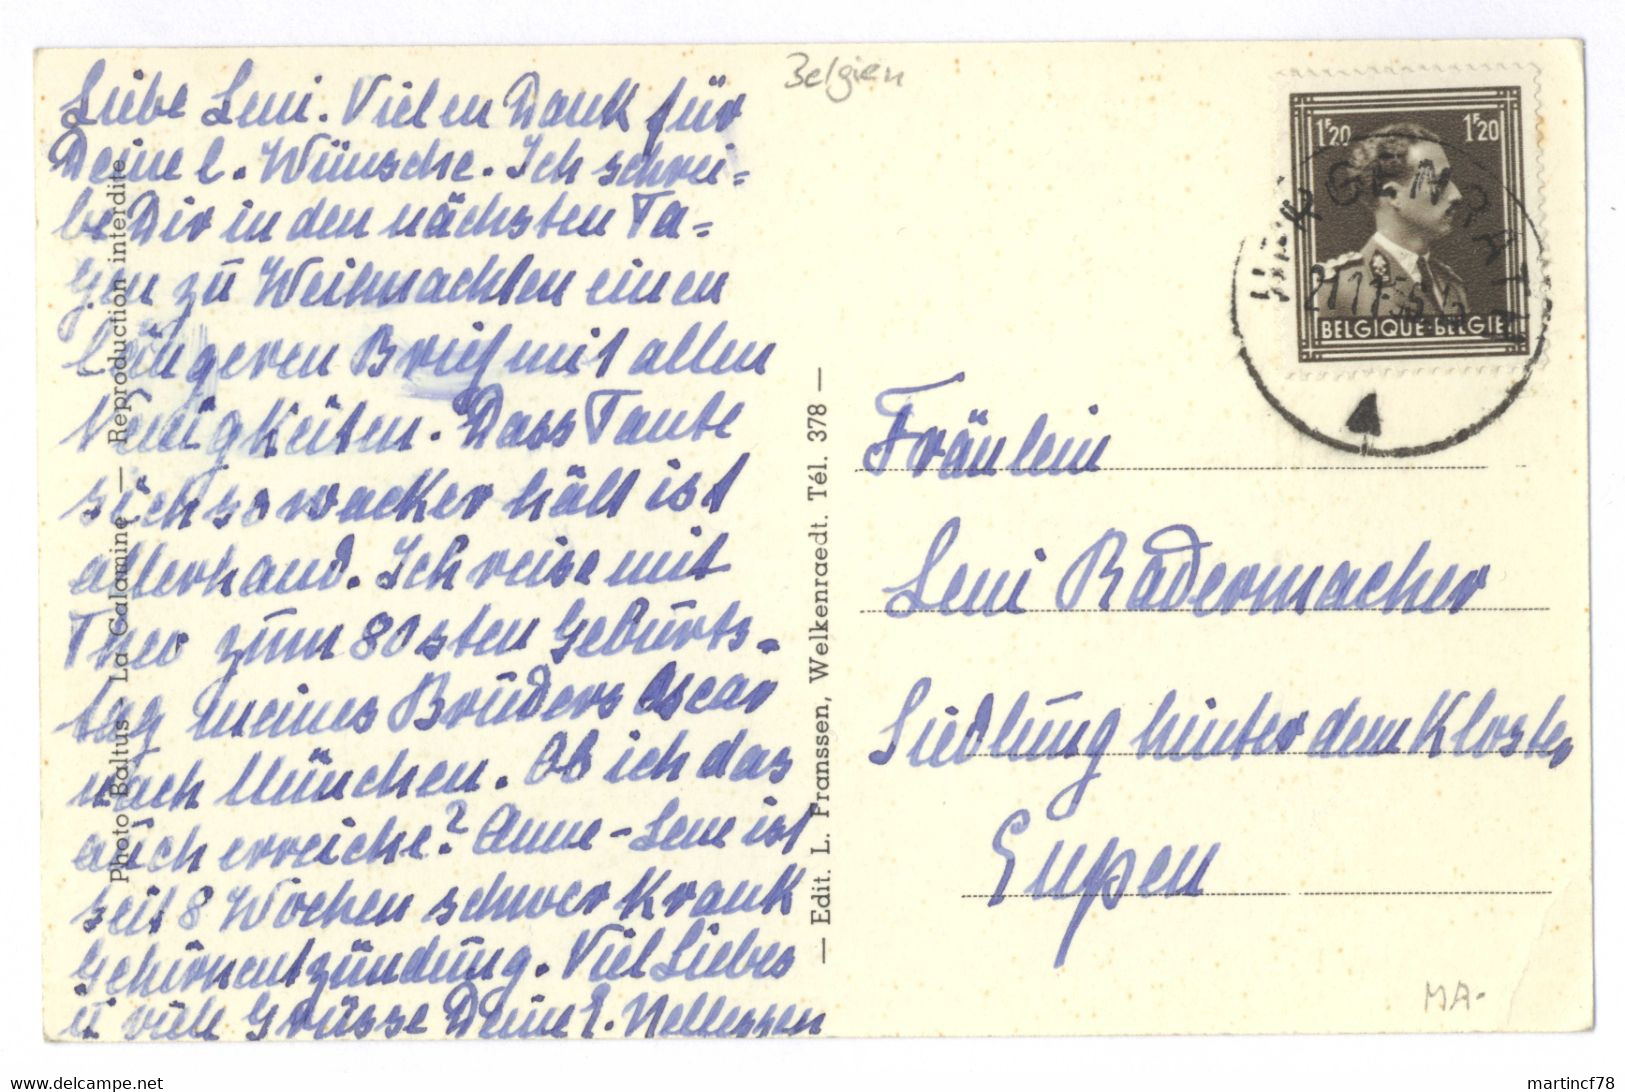 Belgien
Liebe Leni. Vielen Dank für
Deine l. Wünsche. Ich schrei=
be Dir in den nächsten Ta=
gen zu Weihnachten einen
längeren Brief mit allen
Neuigkeiten. Dass Tante
sich so wacker hält ist
allerhand. Ich reise mit
Theo zum 80sten Geburts-
tag meines Bruders Oscar
nach München. Ob ich das
auch erreiche? Anne-Lene ist
seit 8 Wochen schwer krank
Gehirnentzündung. Viel Liebes
u viele Grüsse Deine E. Nellessen
Photo Baltus - La Calamine — Reproduction interdite
— Edit. L. Franssen, Welkenraedt. Tél. 378 —
1F20 1F20
BELGIQUE·BELGIE
HERGENRATH
Fräulein
Leni Radermacher
Siedlung hinter dem Kloster
Eupen
MA-
www.delcampe.net
martincf78